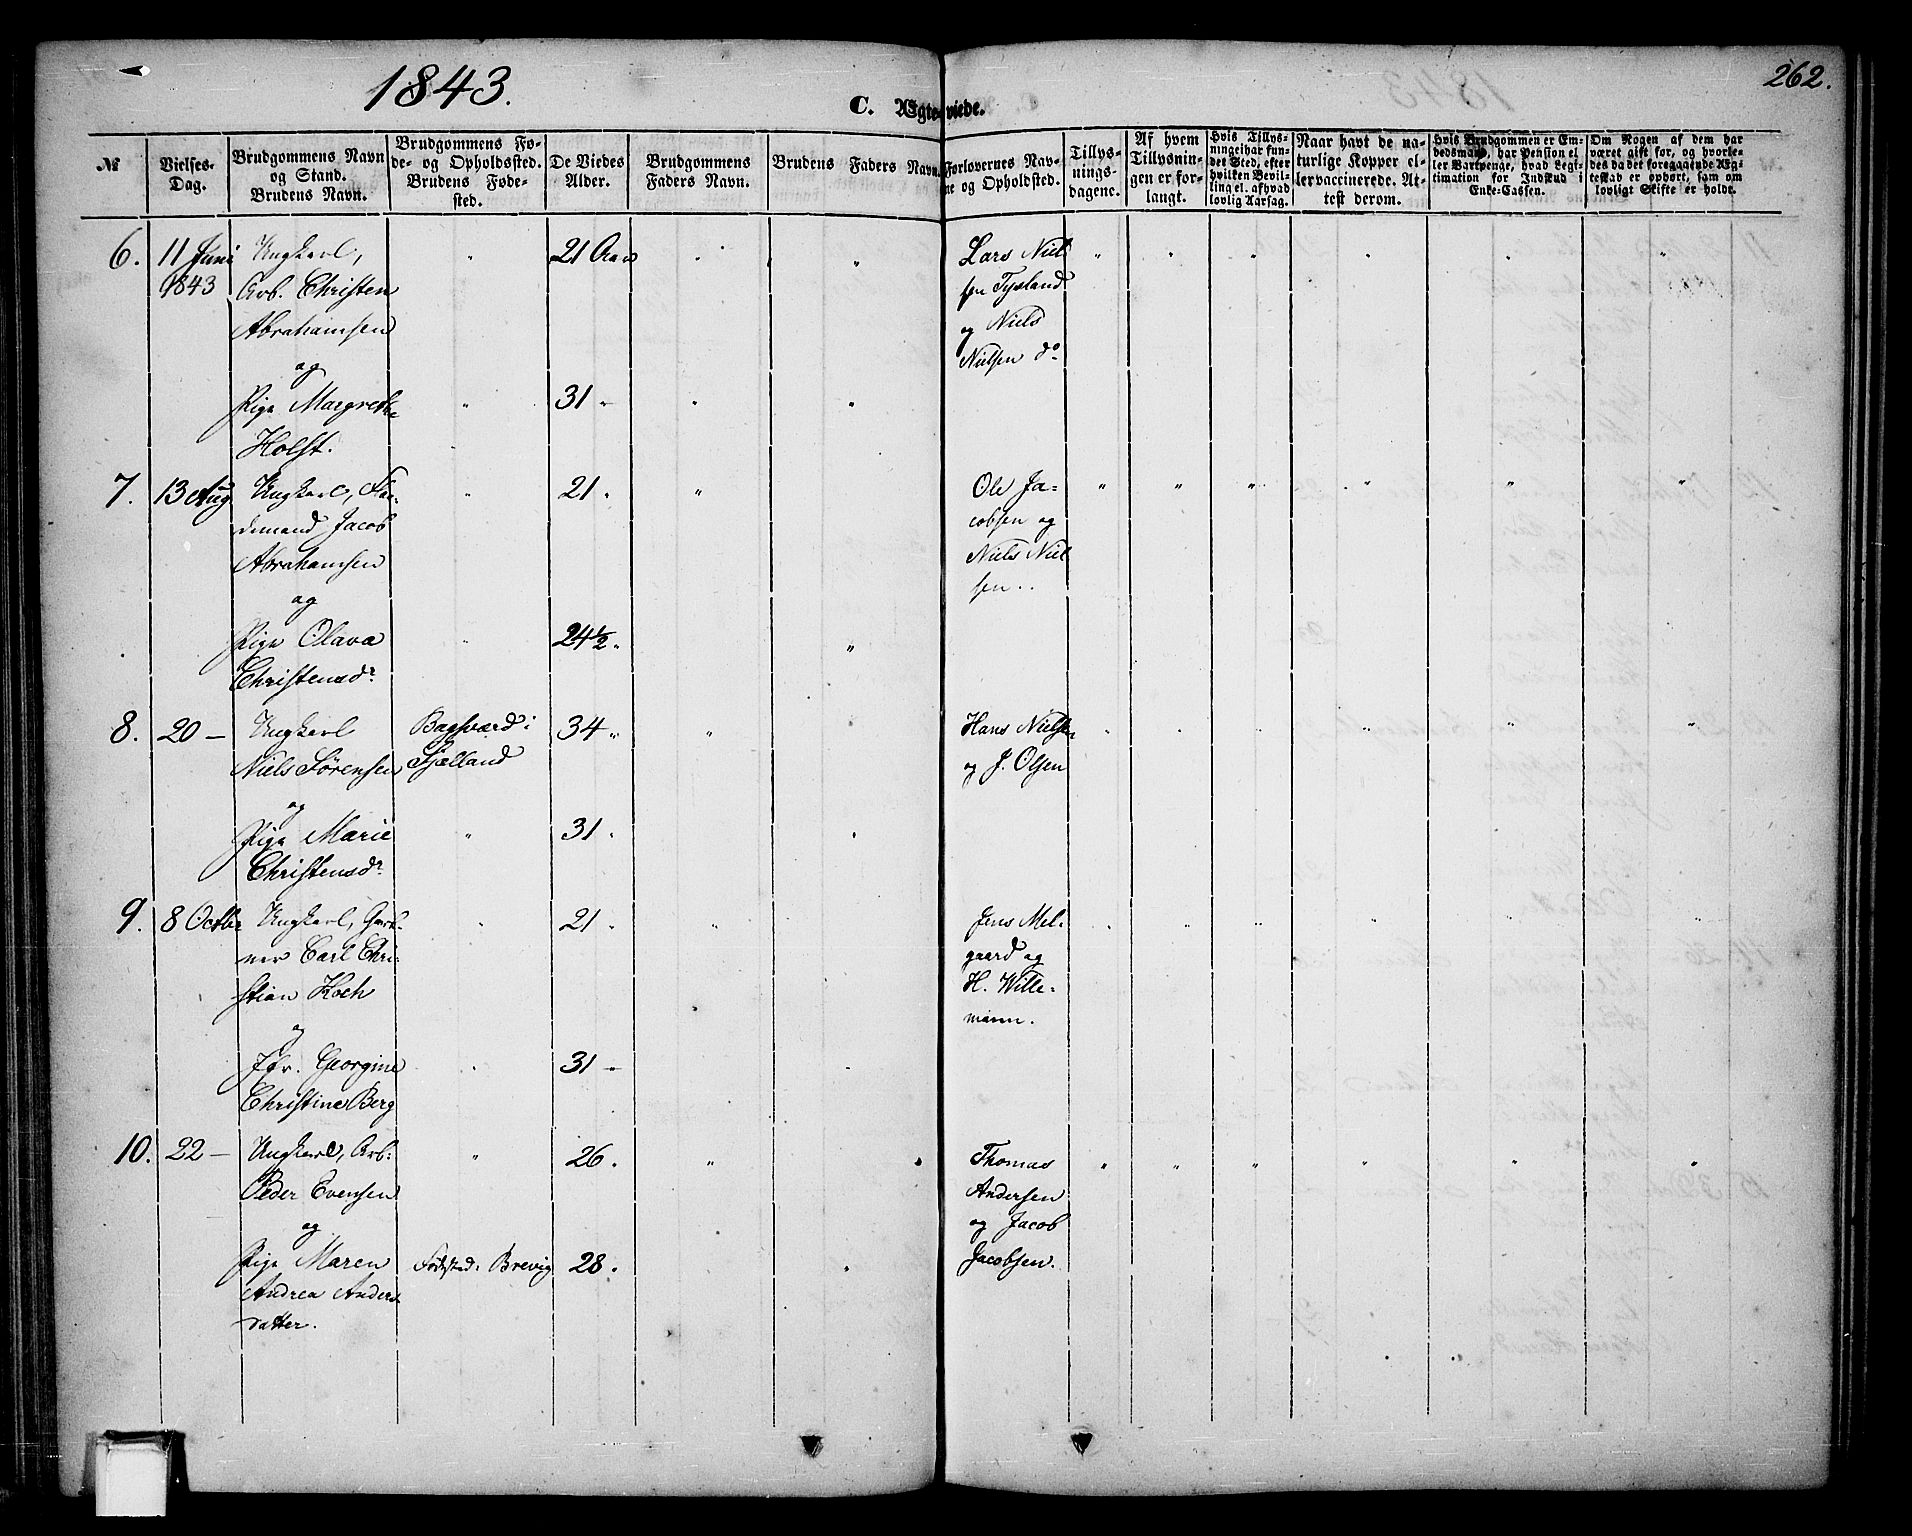 1843.
262.
C. Ægteviede.
№
Vielses-
Dag.
Brudgommens Navn
og Stand.
Brudens Navn.
Brudgommens Fø-
de- og Opholdssted.
Brudens Føde-
sted.
De Viedes
Alder.
Brudgommens
Faders Navn.
Brudens Faders Navn.
Forlovernes Nav-
ne og Opholdsted.
Tillys-
nings-
dagene.
Af hvem
Tillysnin-
gen er for-
langt.
Hvis Tillys-
ning ei har fun-
det Sted, efter
hvilken Bevil-
ling el. af hvad
lovlig Aarsag.
Naar havt de na-
turlige Kopper el-
ler vaccinerede. At-
test derom.
Hvis Brudgommen er Em-
bedsmand, har Pension el-
ler Vartpenge, hvad Legi-
timation for Indskud i
Enke-Cassen.
Om Nogen af dem har
været gift før, og hvorle-
des da det foregaaende Æg-
teskab er ophørt, sam om
lovligt Skifte er holdt.
6. 11 Juni
1843
Ungkarl,
Arb. Christen
Abrahamsen
og
Pige Margrethe
Holst.
" 21 Aar " " "
" 31 " " "
Lars Niel
sen Tysland
og Niels
Nielsen do
" " " " " "
7. 13 Aug
Ungkarl,
demand Jacob
Abrahamsen
og
Pige Olava
Christensdr
" 21 " "
" 24½ " "
Ole Ja-
cobsen og
Niels Niel
sen..
" " " " " "
8. 20 –
Ungkarl
Niels Sørensen
og
Pige Marie
Christensdr
Bagsværd i
Sjælland
34 " "
" 31 " "
Hans Nielsen
og J. Olsen
" " " " " "
9. 8 Octbr
Ungkarl, Gart-
ner Carl Chri-
stian Koch
og
Jfr. Georgine
Christine Berg
" 21 " "
" 31 – "
Jens Mel-
gaard og
H. Wille-
mann.
" " " " " "
10. 22 –
Ungkarl, Arb:
Peder Evensen
og
Pige Maren
Andrea Anders
datter.
" 26. " "
Fødested: Brevig
28. "
Thomas
Andersen
og Jacob
Jacobsen.
" " " " " "